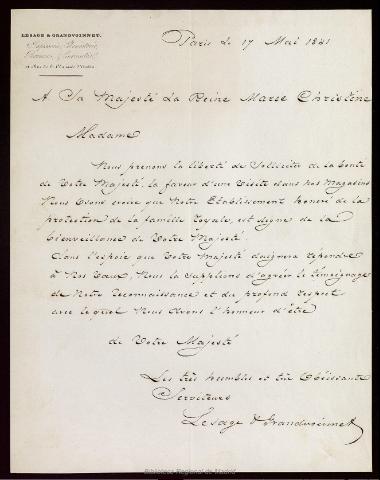 LESAGE & GRANDVOINNET.
Paris le 17 Mai 1841
A Sa Majesté La Reine Marie Christine
Madame
Nous prenons la liberté de Solliciter de la bonté
de Votre Majesté, la faveur d'une Visite dans nos Magasins
Nous osons croire que Notre Etablissement honoré de la
protection de la famille royale, est digne de la
bienveillance de Votre Majesté.
Dans l'espoir que Votre Majesté daignera répondre
à Nos Vœux, Nous la supplions d'agréer le témoignage
de Notre reconnaissance et du profond respect
avec lequel Nous avons l'honneur d'être
de Votre Majesté
Les très humbles et très Obéissants
Serviteurs
Lesage & Grandvoinnet
Biblioteca Regional de Madrid